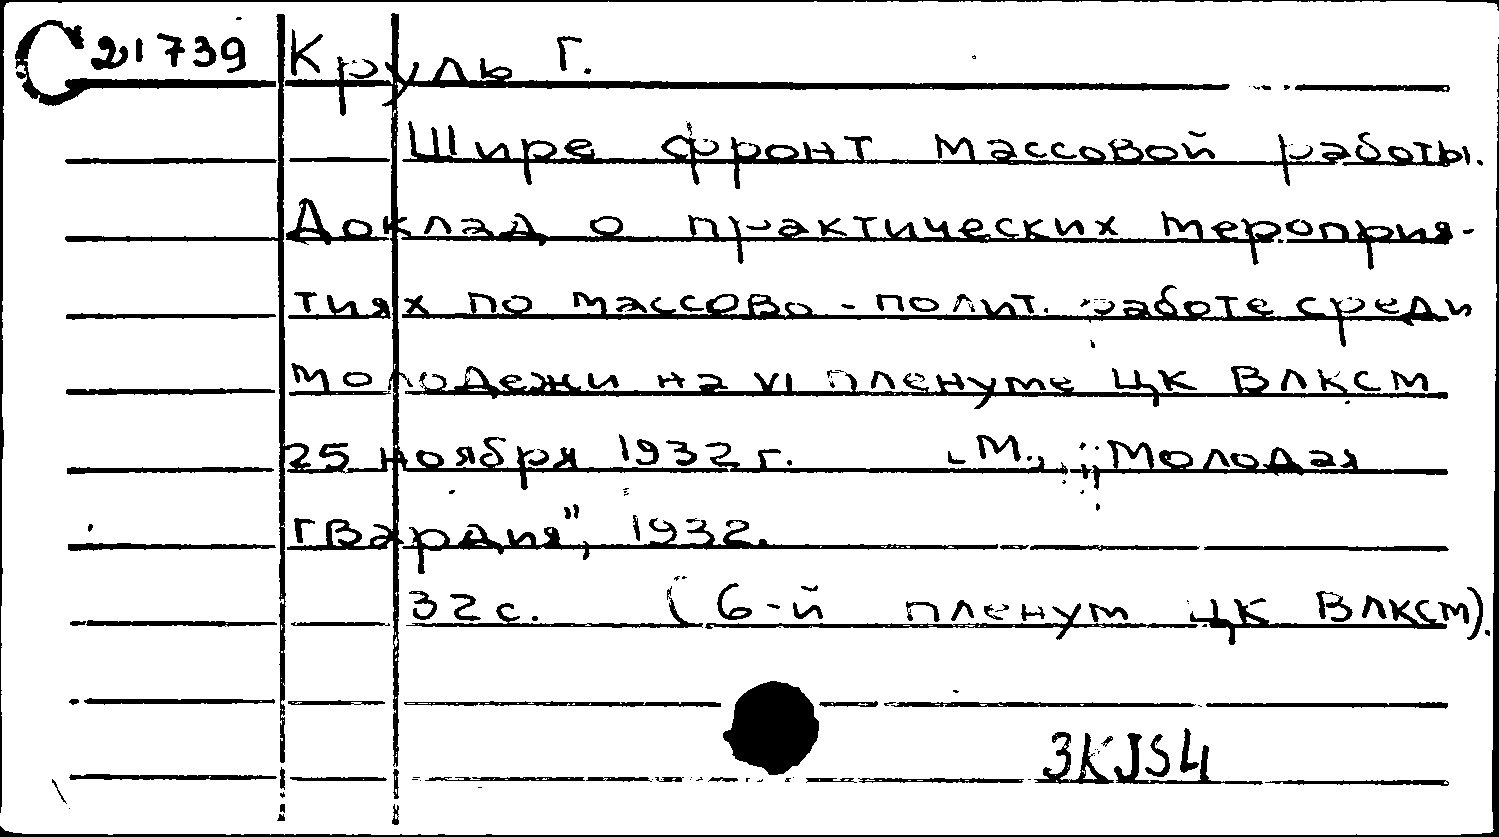 С 21739 Круль Г.
Шире фронт массовой работы.
Доклад о практических мероприя-
тиях по массово-полит. работе среди
молодежи на VI пленуме ЦК ВЛКСМ
25 ноября 1932 г. М., „Молодая
гвардия", 1932.
32 с. (6-й пленум ЦК ВЛКСМ).
3KJS4